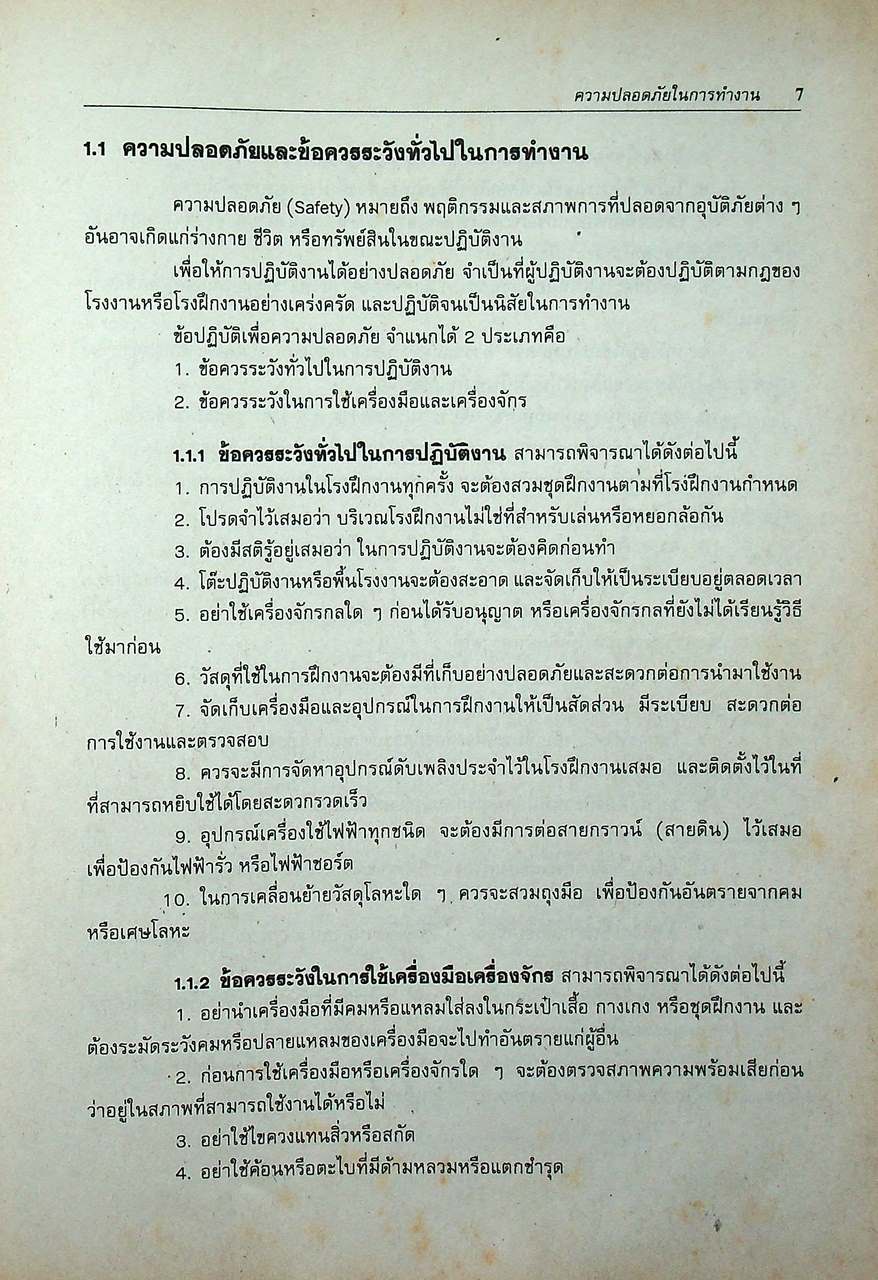 ความปลอดภัยในการทำงาน 7
1.1 ความปลอดภัยและข้อควรระวังทั่วไปในการทำงาน
ความปลอดภัย (Safety) หมายถึง พฤติกรรมและสภาพการที่ปลอดจากอุบัติภัยต่าง ๆ
อันอาจเกิดแก่ร่างกาย ชีวิต หรือทรัพย์สินในขณะปฏิบัติงาน
เพื่อให้การปฏิบัติงานได้อย่างปลอดภัย จำเป็นที่ผู้ปฏิบัติงานจะต้องปฏิบัติตามกฎของ
โรงงานหรือโรงฝึกงานอย่างเคร่งครัด และปฏิบัติจนเป็นนิสัยในการทำงาน
ข้อปฏิบัติเพื่อความปลอดภัย จำแนกได้ 2 ประเภทคือ
1. ข้อควรระวังทั่วไปในการปฏิบัติงาน
2. ข้อควรระวังในการใช้เครื่องมือและเครื่องจักร
1.1.1 ข้อควรระวังทั่วไปในการปฏิบัติงาน สามารถพิจารณาได้ดังต่อไปนี้
1. การปฏิบัติงานในโรงฝึกงานทุกครั้ง จะต้องสวมชุดฝึกงานตามที่โรงฝึกงานกำหนด
2. โปรดจำไว้เสมอว่า บริเวณโรงฝึกงานไม่ใช่ที่สำหรับเล่นหรือหยอกล้อกัน
3. ต้องมีสติรู้อยู่เสมอว่า ในการปฏิบัติงานจะต้องคิดก่อนทำ
4. โต๊ะปฏิบัติงานหรือพื้นโรงงานจะต้องสะอาด และจัดเก็บให้เป็นระเบียบอยู่ตลอดเวลา
5. อย่าใช้เครื่องจักรกลใด ๆ ก่อนได้รับอนุญาต หรือเครื่องจักรกลที่ยังไม่ได้เรียนรู้วิธี
ใช้มาก่อน
6. วัสดุที่ใช้ในการฝึกงานจะต้องมีที่เก็บอย่างปลอดภัยและสะดวกต่อการนำมาใช้งาน
7. จัดเก็บเครื่องมือและอุปกรณ์ในการฝึกงานให้เป็นสัดส่วน มีระเบียบ สะดวกต่อ
การใช้งานและตรวจสอบ
8. ควรจะมีการจัดหาอุปกรณ์ดับเพลิงประจำไว้ในโรงฝึกงานเสมอ และติดตั้งไว้ในที่
ที่สามารถหยิบใช้ได้โดยสะดวกรวดเร็ว
9. อุปกรณ์เครื่องใช้ไฟฟ้าทุกชนิด จะต้องมีการต่อสายกราวน์ (สายดิน) ไว้เสมอ
เพื่อป้องกันไฟฟ้ารั่ว หรือไฟฟ้าชอร์ต
10. ในการเคลื่อนย้ายวัสดุโลหะใด ๆ ควรจะสวมถุงมือ เพื่อป้องกันอันตรายจากคม
หรือเศษโลหะ
1.1.2 ข้อควรระวังในการใช้เครื่องมือเครื่องจักร สามารถพิจารณาได้ดังต่อไปนี้
1. อย่านำเครื่องมือที่มีคมหรือแหลมใส่ลงในกระเป๋าเสื้อ กางเกง หรือชุดฝึกงาน และ
ต้องระมัดระวังคมหรือปลายแหลมของเครื่องมือจะไปทำอันตรายแก่ผู้อื่น
2. ก่อนการใช้เครื่องมือหรือเครื่องจักรใด ๆ จะต้องตรวจสภาพความพร้อมเสียก่อน
ว่าอยู่ในสภาพที่สามารถใช้งานได้หรือไม่
3. อย่าใช้ไขควงแทนสิ่วหรือสกัด
4. อย่าใช้ค้อนหรือตะไบที่มีด้ามหลวมหรือแตกชำรุด